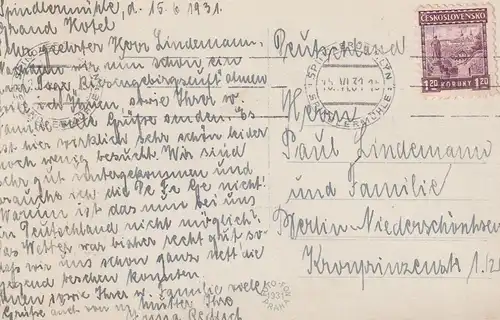 Spindlermühle, d. 15.6.1931.
Grand Hotel
Sehr geehrter Herr Lindemann.
wir nun schon ein
Tage Riesengebirgsluft atmen
will ich Ihnen, sowie Ihrer w.
Familie viele Grüße senden. Es
ist hier wirklich sehr schön leider
noch wenig besucht. Wir sind
sehr gut untergekommen und
brauche ich die Be Te Ge nicht!
Warum ist das nun bei uns
in Deutschland nicht möglich.
Das Wetter war bisher recht gut so-
dass wir uns schon ganz nett die
Gegend besehen konnten.
Ihnen sowie Ihrer w. Familie viele
Grüße auch von m. Mutter Ihre
ČESKOSLOVENSKO
1.20 KORUNY 1.20
ŠPINDLERŮV MLÝN
15.VI.31
SPINDLERMÜHLE
Deutschland
Herrn
Paul Lindemann
und Familie
Berlin-Niederschönhausen
Kronprinzenst.
1931